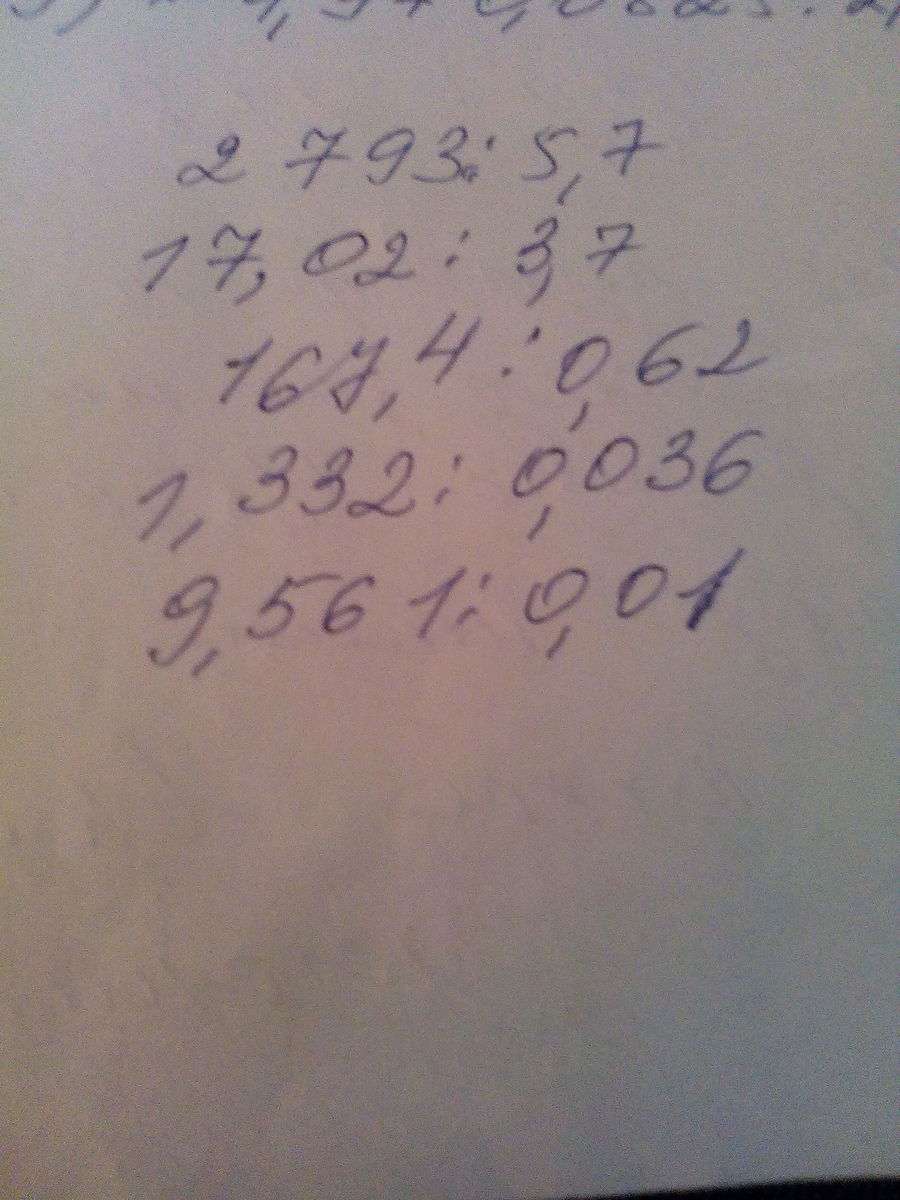 2 793 : 5,7
17,02 : 3,7
167,4 : 0,62
1,332 : 0,036
9,561 : 0,01